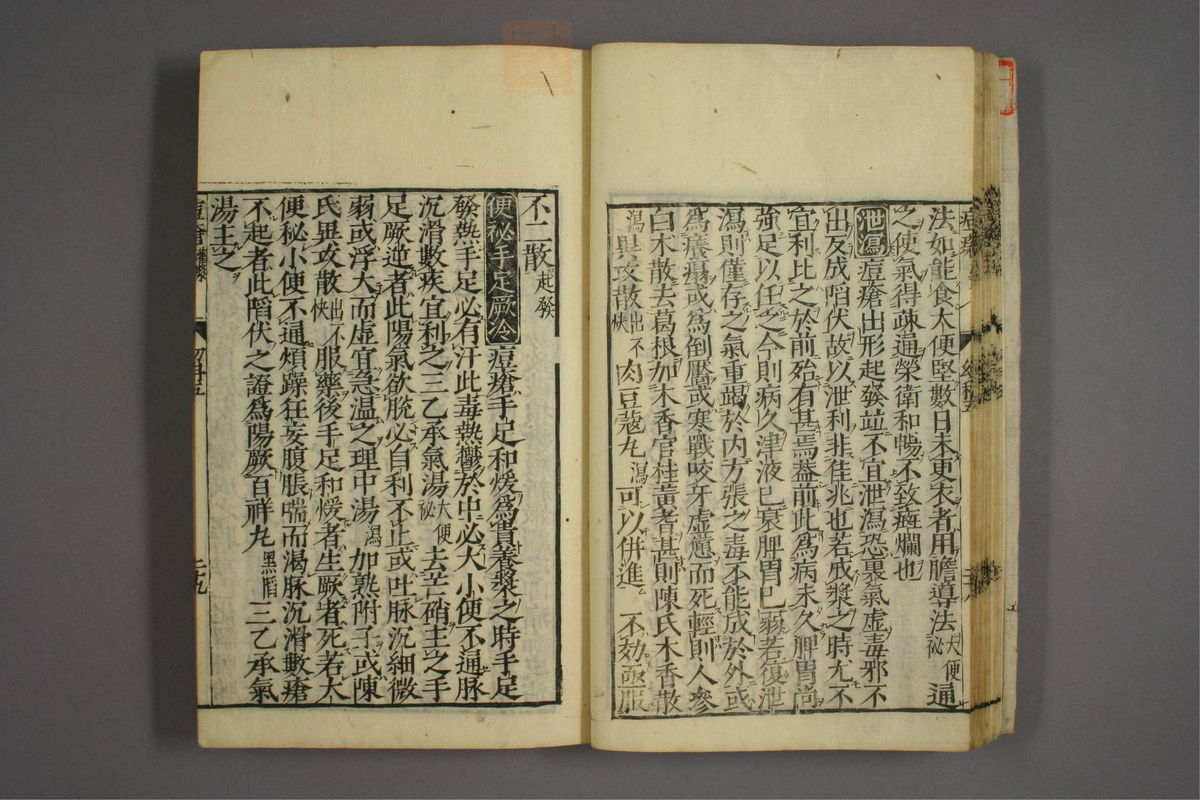 法如能食大便堅數日未更衣者用膽導法大便秘通
之使氣得疎通榮衛和暢不致斑爛也
泄瀉 痘瘡出形起發並不宜泄瀉恐裏氣虚毒邪不
出反成陷伏故以泄利非佳兆也若成漿之時尤不
宜利比之於前殆有甚焉蓋前此為病未久脾胃尚
強足以任之今則病久津液已衰脾胃已弱若復泄
瀉則僅存之氣重竭於内方張之毒不能成於外或
為癢塌或為倒靨或寒戰咬牙虚憊而死輕則人參
白木散去葛根加木香官桂黃耆甚則陳氏木香散
瀉異攻散出不快肉豆蔻丸瀉可以併進 不効亟服
不二散起發
便秘手足厥冷 痘瘡手足和煖為貴養漿之時手足
發熱手足必有汗此毒熱欝於中必大小便不通脉
沉滑數疾宜利之三乙承氣湯大便秘去芒硝主之手
足厥逆者此陽氣欲脫必自利不止或吐脉沉細微
弱或浮大而虚宜急温之理中湯瀉加熟附子或陳
氏異攻散出不快服藥後手足和煖者生厥者死若大
便秘小便不通煩躁狂妄腹脹喘而渴脉沉滑數瘡
不起者此陷伏之證為陽厥百祥丸黑陷三乙承氣
湯主之
二十九